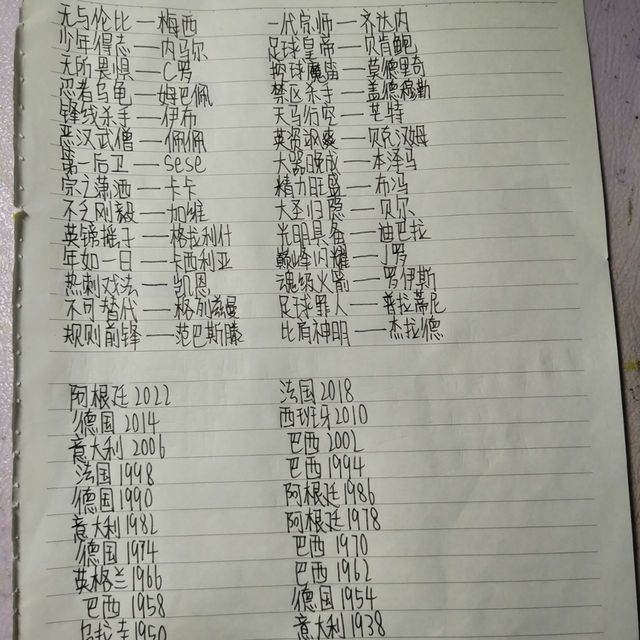 无与伦比—梅西 一代宗师—齐达内
少年得志—内马尔 足球皇帝—贝肯鲍
无所畏惧—C罗 控球魔笛—莫德里奇
忍者乌龟—姆巴佩 禁区杀手—盖德穆勒
锋线杀手—伊布 天马行空—芒特
恶汉武僧—佩佩 英姿飒爽—贝克汉姆
第一后卫—sese 大器晚成—本泽马
宗之潇洒—卡卡 精力旺盛—布冯
不乏刚毅—加维 大圣归隐—贝尔
英镑摇子—格拉利什 光明具备—迪巴拉
年如一日—卡西利亚 巅峰闪耀—J罗
热刺戏法—凯恩 魂级火箭—罗伊斯
不可替代—格列兹曼 足球罪人—普拉蒂尼
规则前锋—范巴斯滕 比肩神明—杰拉德
阿根廷2022 法国2018
德国2014 西班牙2010
意大利2006 巴西2002
法国1998 巴西1994
德国1990 阿根廷1986
意大利1982 阿根廷1978
德国1974 巴西1970
英格兰1966 巴西1962
巴西1958 德国1954
乌拉圭1950 意大利1938